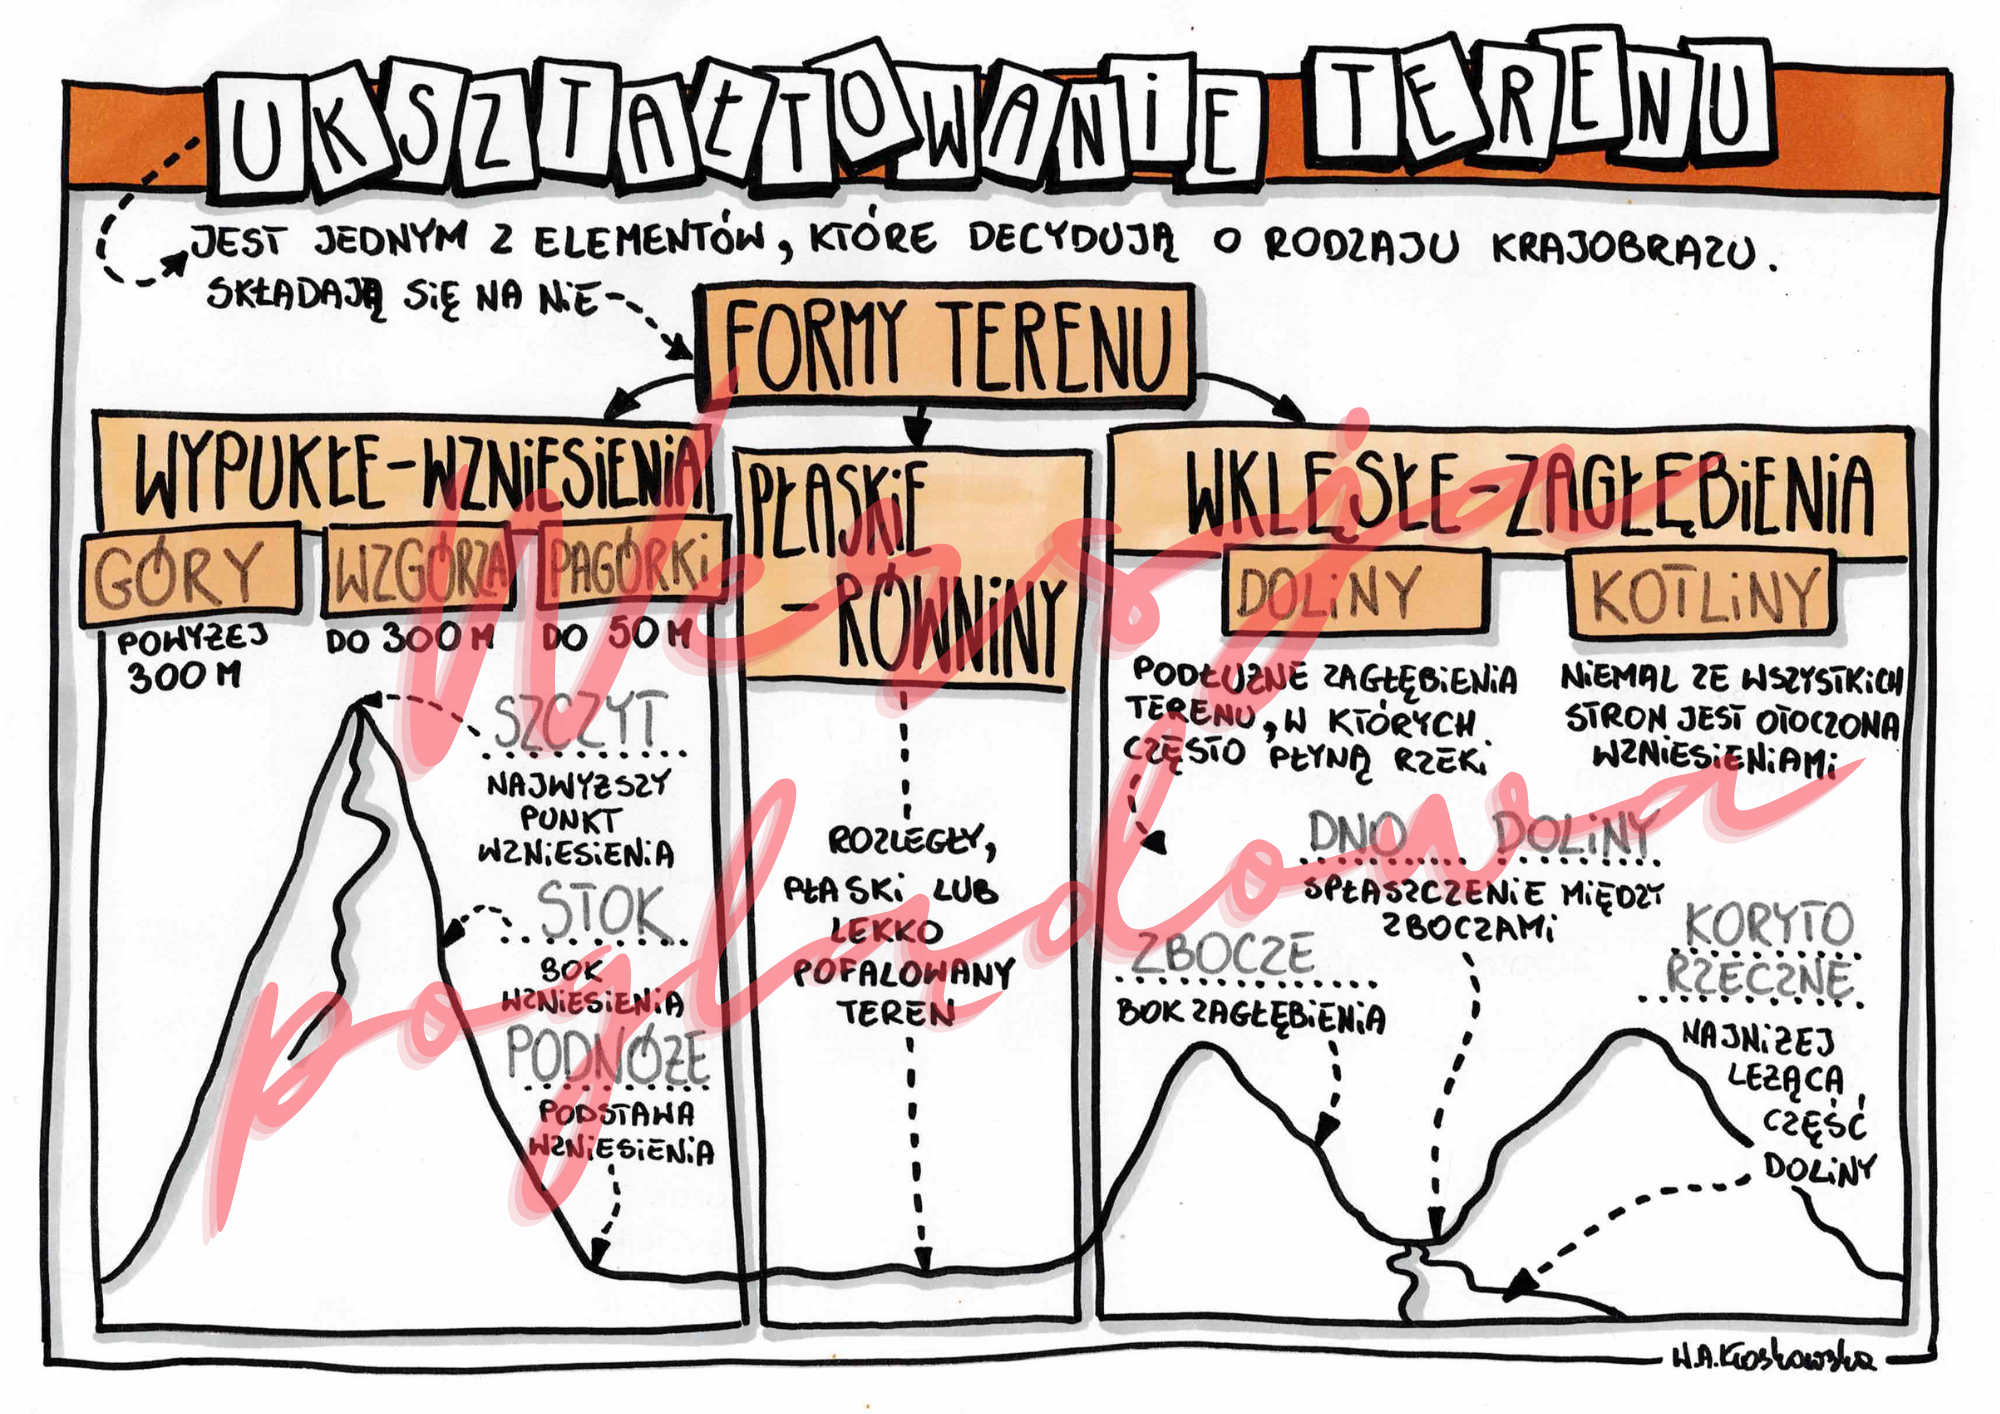 UKSZTAŁTOWANIE TERENU
JEST JEDNYM Z ELEMENTÓW, KTÓRE DECYDUJĄ O RODZAJU KRAJOBRAZU.
SKŁADAJĄ SIĘ NA NIE
FORMY TERENU
WYPUKŁE-WZNIESIENIA
GÓRY
POWYŻEJ
300 M
WZGÓRZA
DO 300 M
PAGÓRKI
DO 50 M
SZCZYT
NAJWYŻSZY
PUNKT
WZNIESIENIA
STOK
BOK
WZNIESIENIA
PODNÓŻE
PODSTAWA
WZNIESIENIA
PŁASKIE
-RÓWNINY
ROZLEGŁY,
PŁASKI LUB
LEKKO
POFALOWANY
TEREN
WKLĘSŁE-ZAGŁĘBIENIA
DOLINY
PODŁUŻNE ZAGŁĘBIENIA
TERENU, W KTÓRYCH
CZĘSTO PŁYNĄ RZEKI
KOTLINY
NIEMAL ZE WSZYSTKICH
STRON JEST OTOCZONA
WZNIESIENIAMI
DNO DOLINY
SPŁASZCZENIE MIĘDZY
ZBOCZAMI
ZBOCZE
BOK ZAGŁĘBIENIA
KORYTO
RZECZNE
NAJNIŻEJ
LEŻĄCA
CZĘŚĆ
DOLINY
Wersja
poglądowa